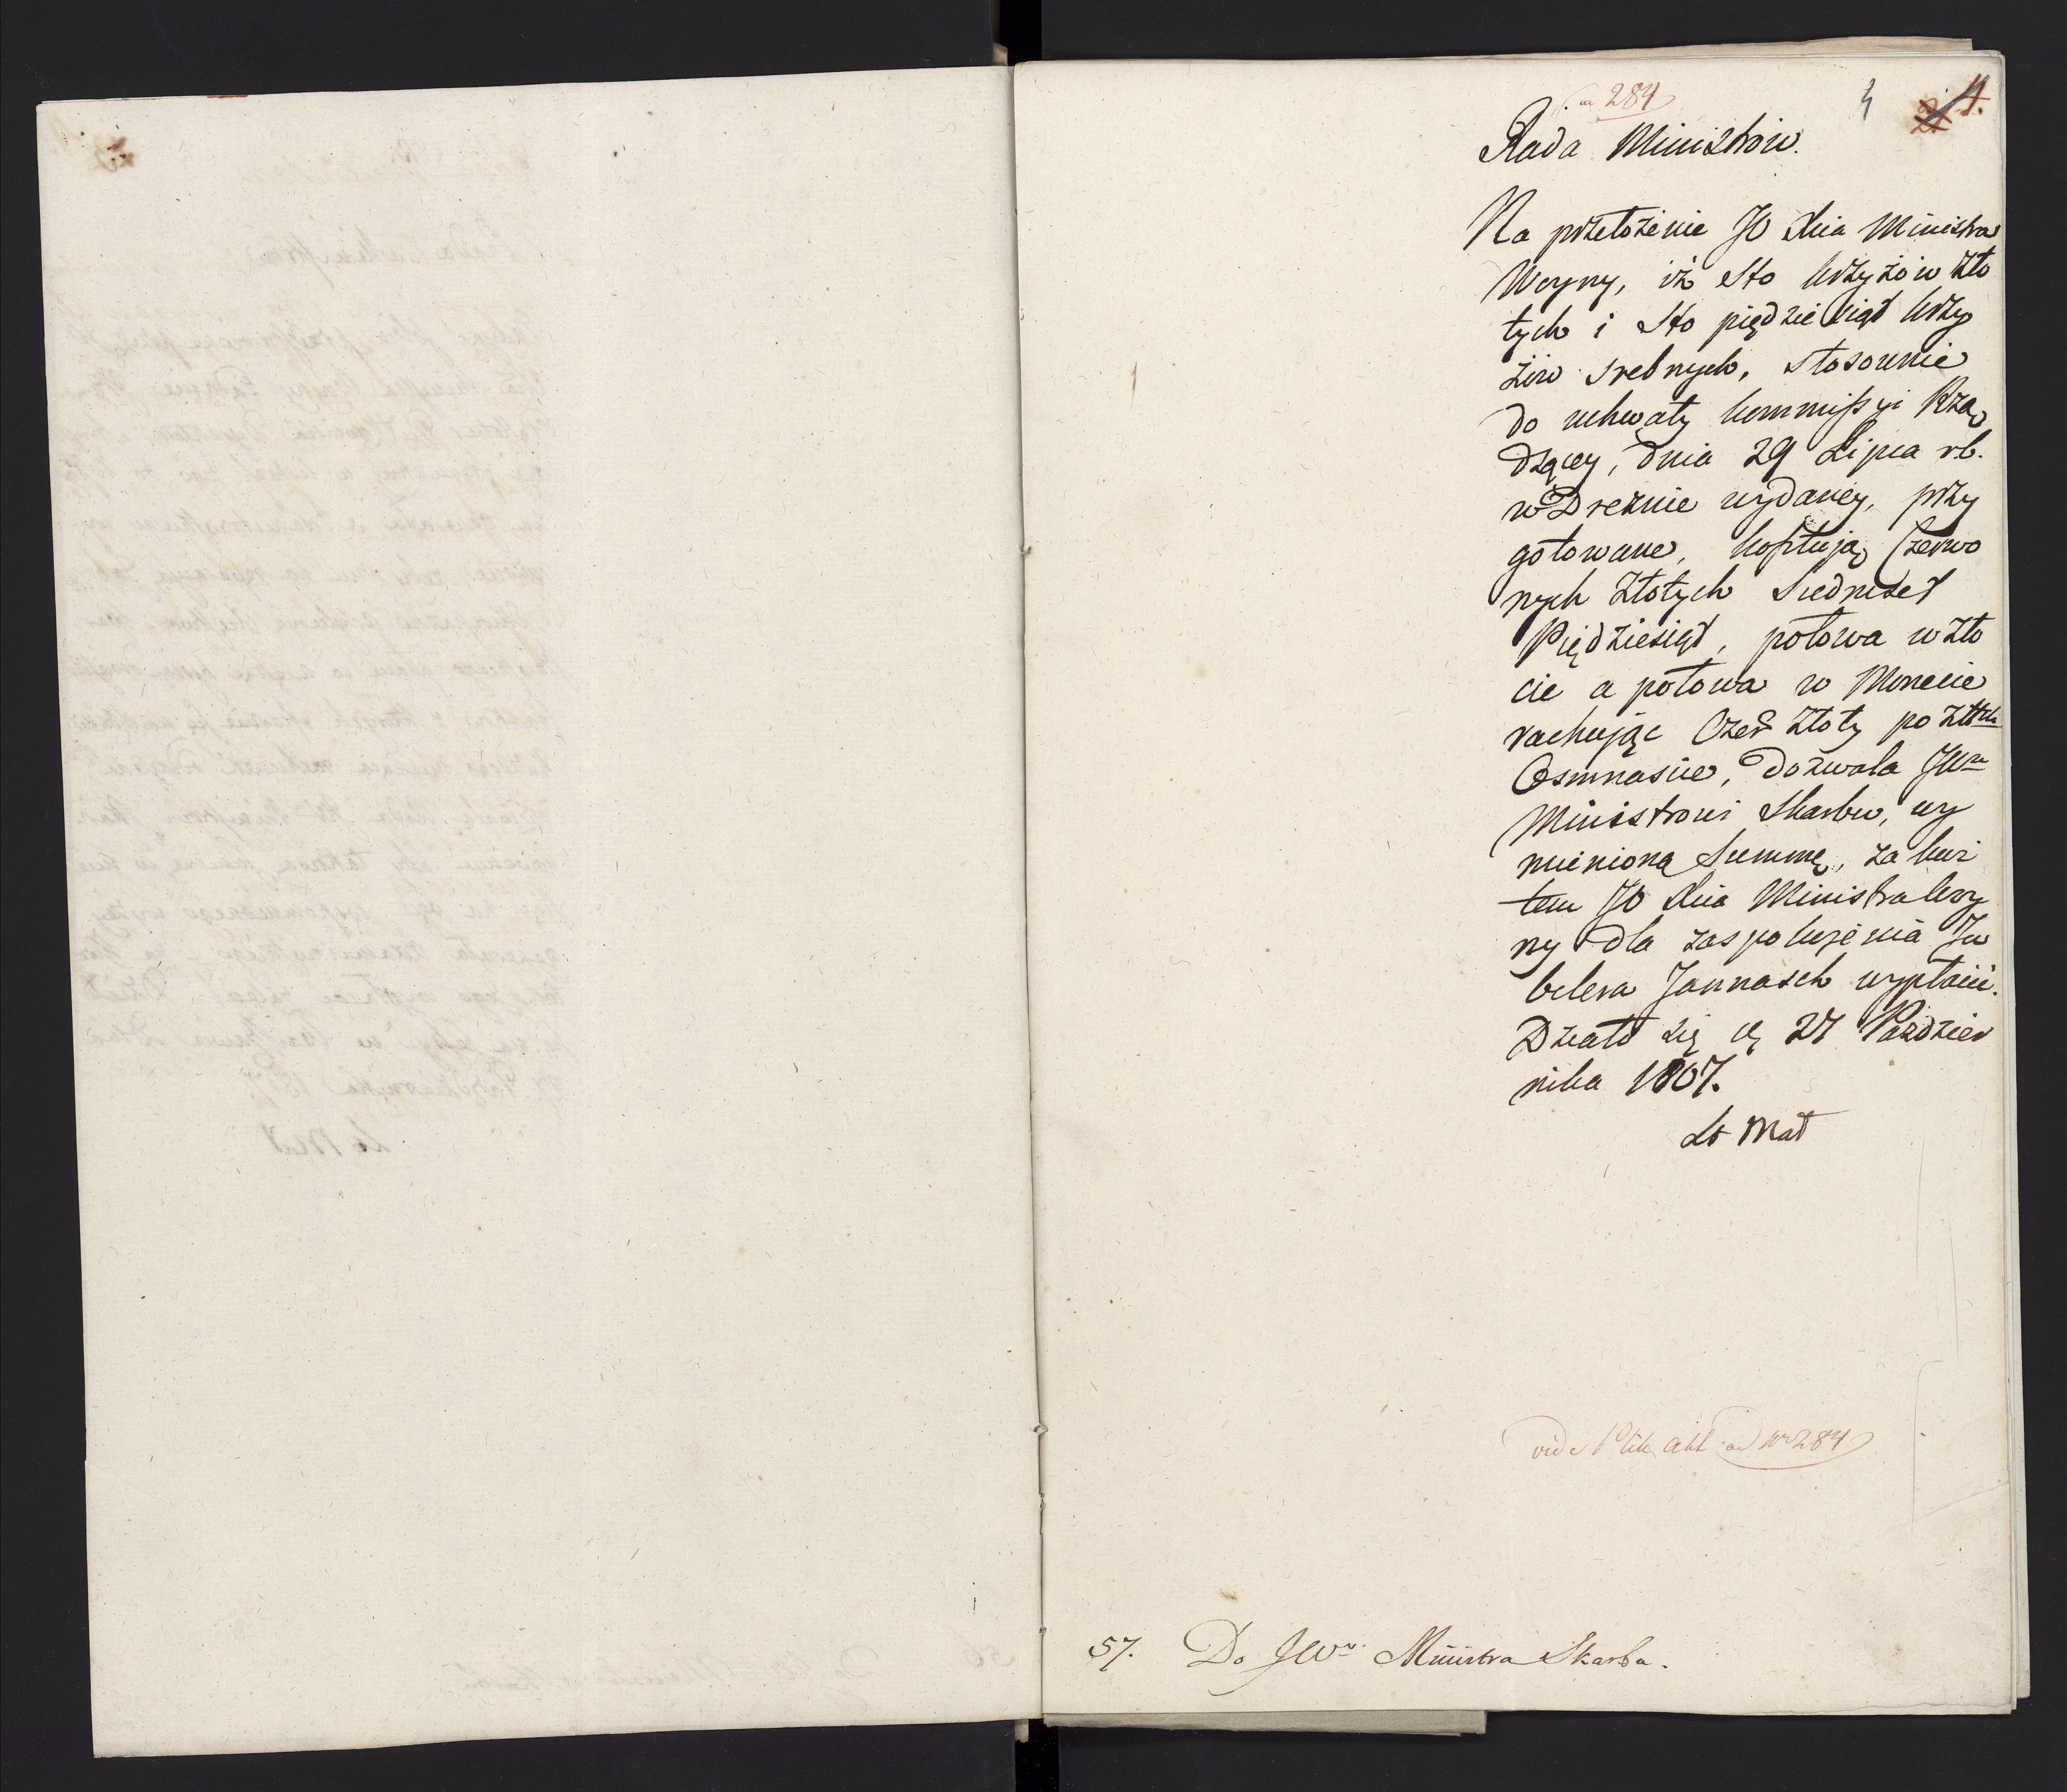 284
4 4.
Rada Ministrów.
Na przełożenie JO Xcia Ministra
Woyny, iż Sto krzyżów zło
tych i Sto piędziesiąt krzy
żów srebnych, stosownie
do uchwały kommissyi Rzą
dzącey, dnia 29 Lipca rb.
w Dreznie wydaney, przy
gotowane, kosztują Czerwo
nych Złotych Siedmset
Pięдziesiąt, połowa w zło
cie a połowa w Monecie
rachując Czer Złoty po Złtch
Osmnaście, dozwala JWu
Ministrowi Skarbu, wy
mienioną Summę, za kwi
tem JO Xcia Ministra Woy
ny dla zaspokojenia Ju
belera Jannasch wypłacić.
Działo się dy 27 Paździer
nika 1807.
St Mał
vide ad Nr 284
57. Do JWo Ministra Skarbu.